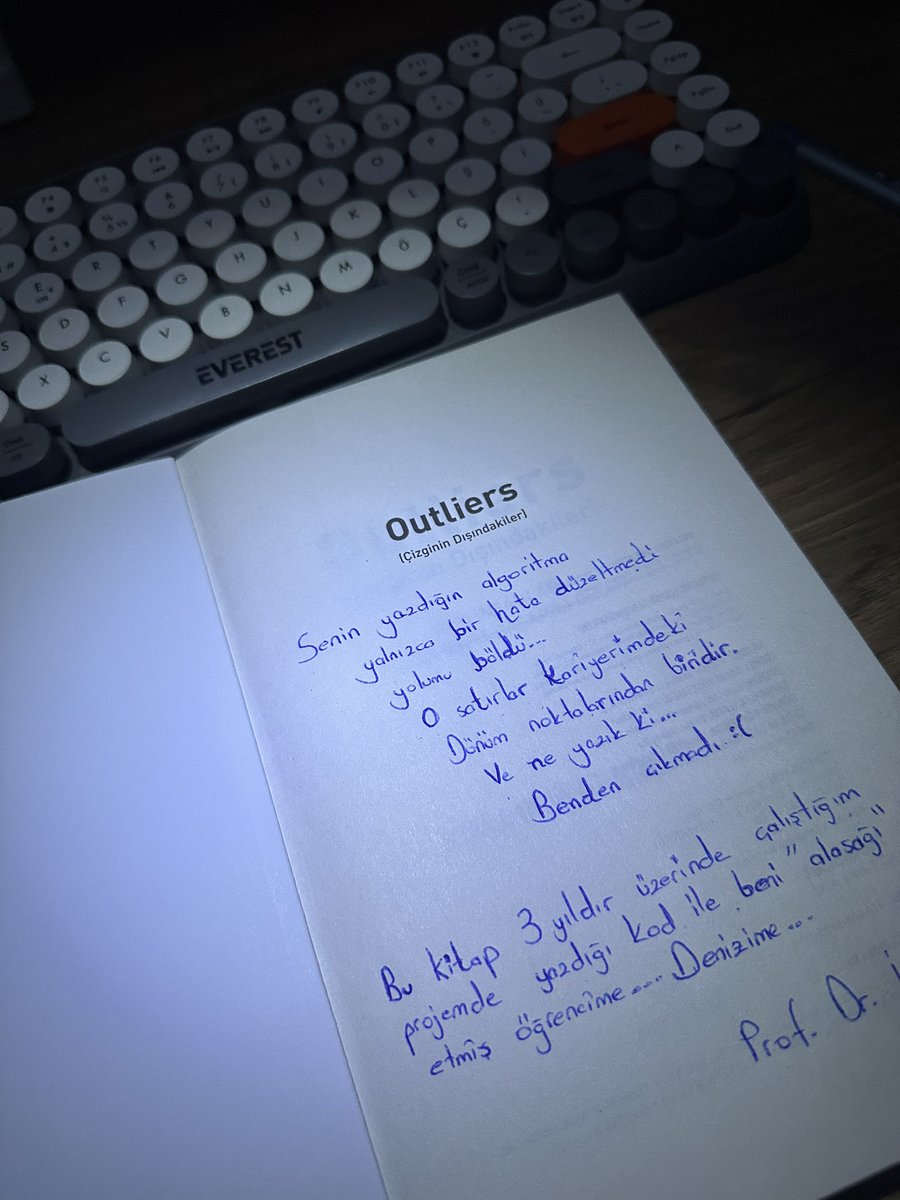 F4 F5 F6 F7 F8 F9 F10 F11 F12
PgUp
PgDn
End
E R T Y U I O P
S D F G H J K L Ş İ
X C V B N M Ö Ç
EVEREST
Outliers
(Çizginin Dışındakiler)
Senin yazdığın algoritma
yalnızca bir hata düzeltmedi
yolumu böldü...
O satırlar kariyerimdeki
Dönüm noktalarından biridir.
Ve ne yazık ki...
Benden çıkmadı. :(
Bu kitap 3 yıldır üzerinde çalıştığım
projemde yazdığı kod ile beni "alaşağı"
etmiş öğrencime.... Denizime...
Prof. Dr. İ